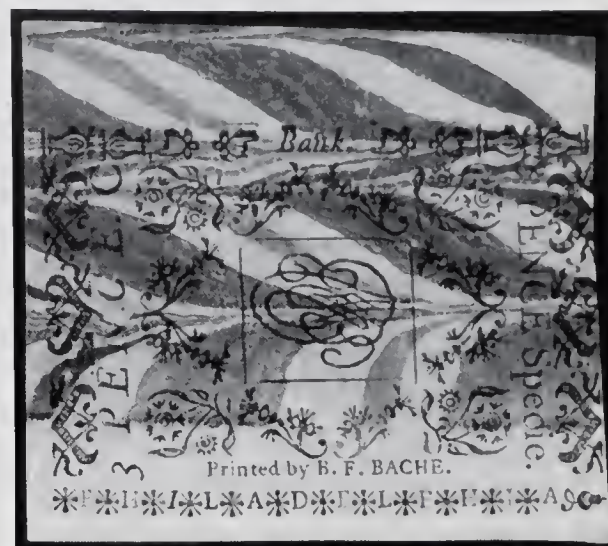 Bank.
3 PENCE
PENCE Specie.
Printed by B. F. BACHE.
PHILADELPHIA